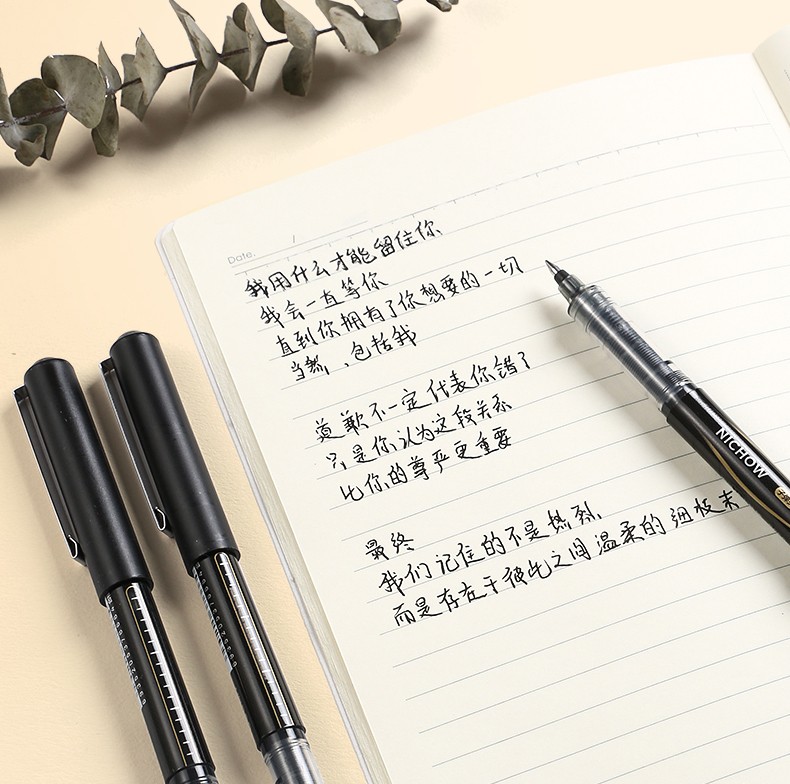 Date.
我用什么才能留住你
我会一直等你
直到你拥有了你想要的一切
当然，包括我
道歉不一定代表你错了
只是你认为这段关系
比你的尊严更重要
最终
我们记住的不是热烈，
而是存在于彼此之间温柔的细枝末
NICHOW